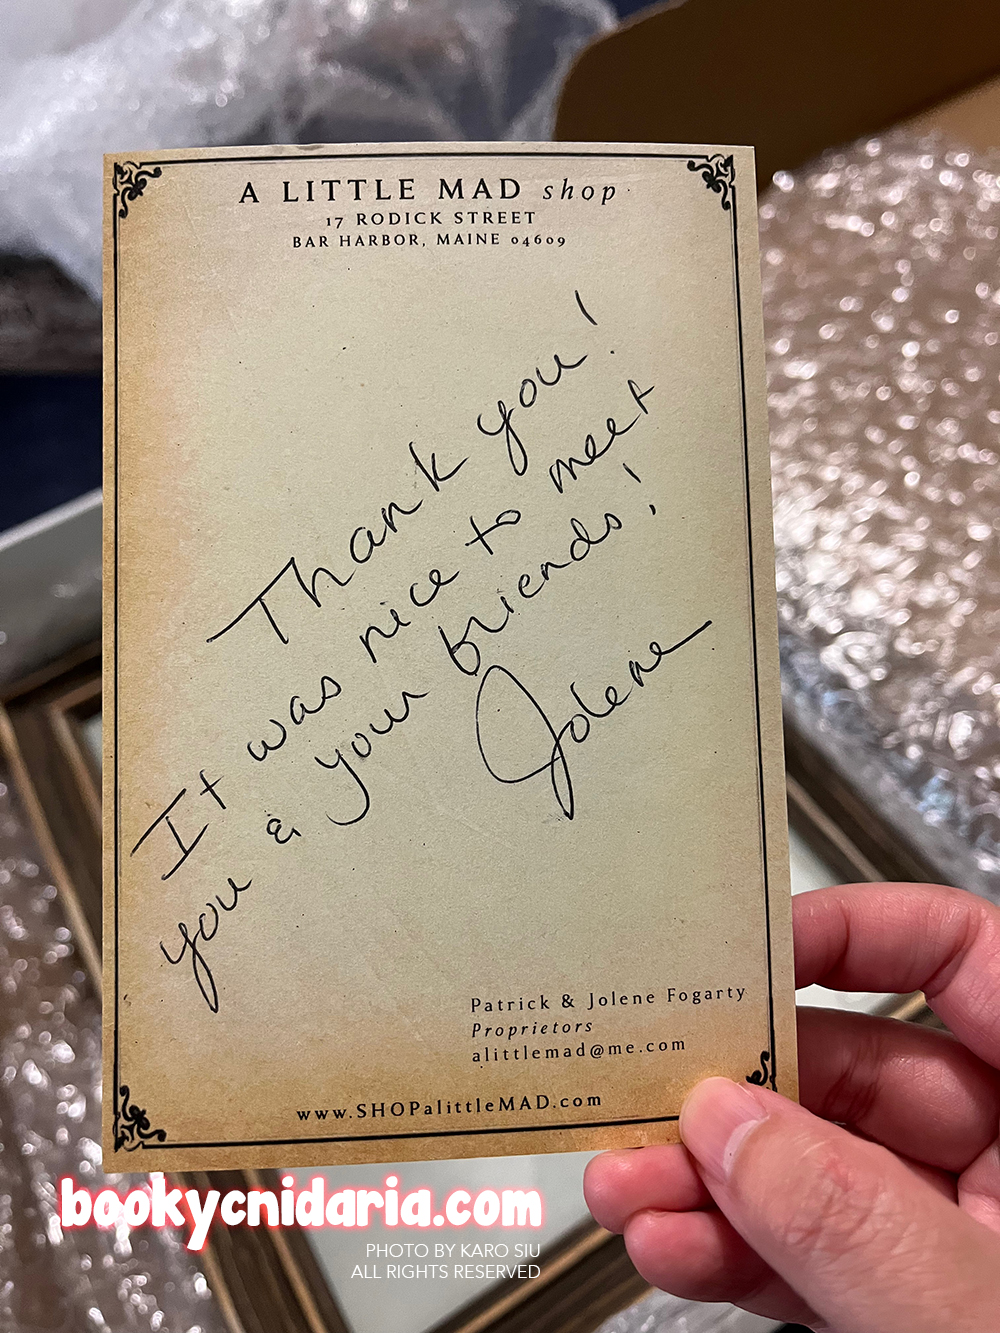 A LITTLE MAD shop
17 RODICK STREET
BAR HARBOR, MAINE 04609
Thank you!
It was nice to meet
you & your friends!
Jolene
Patrick & Jolene Fogarty
Proprietors
alittlemad@me.com
www.SHOPalittleMAD.com
bookycnidaria.com
PHOTO BY KARO SIU
ALL RIGHTS RESERVED